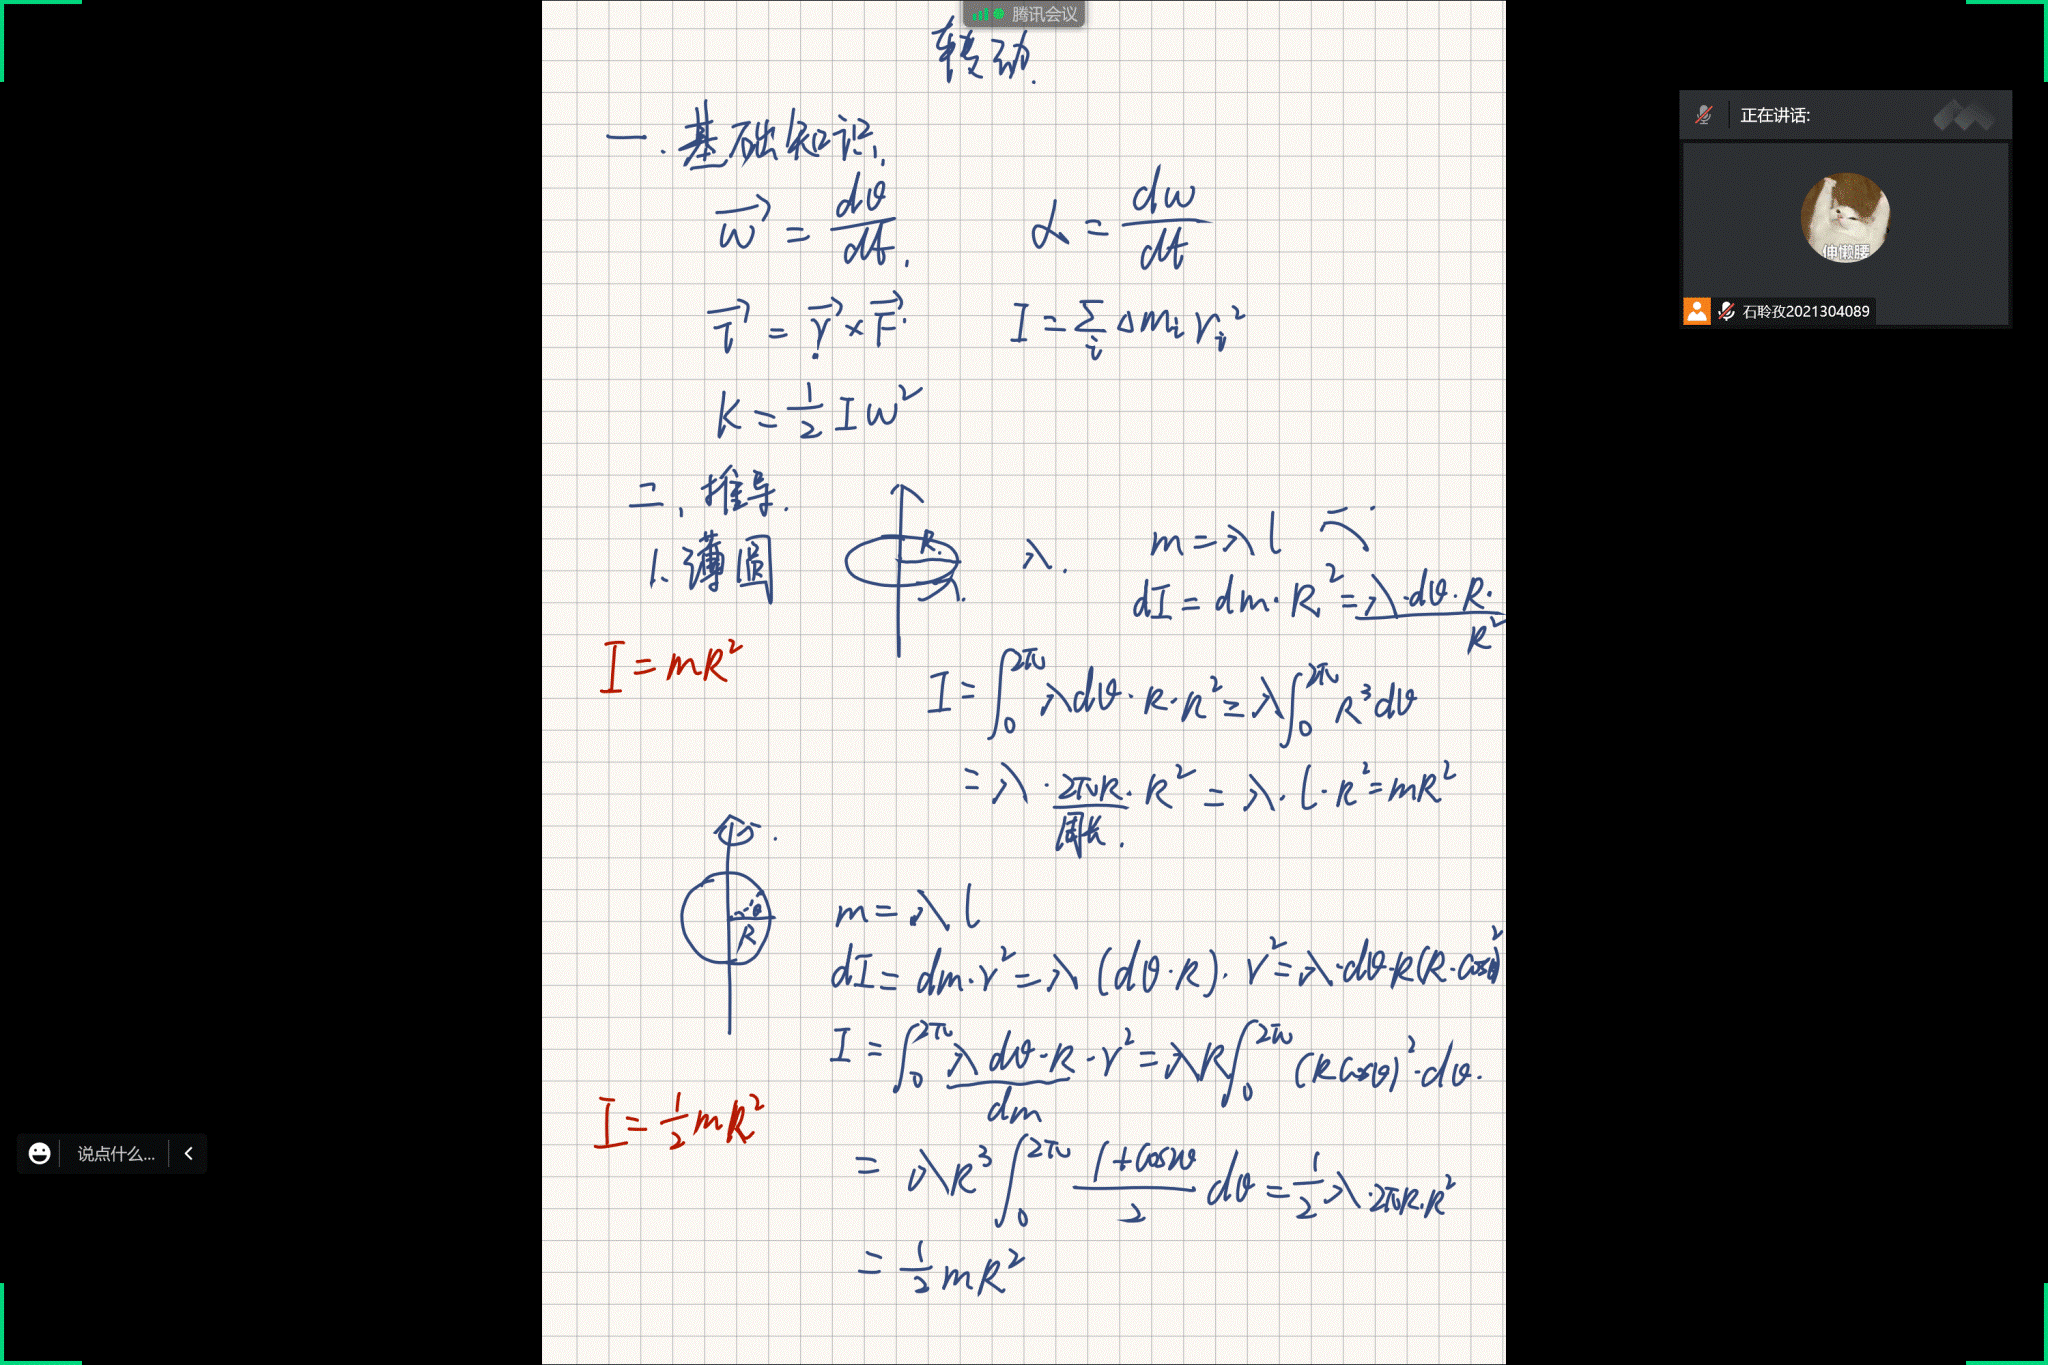 腾讯会议
转动.
一.基础知识.
w⃗ = dθ/dt. α = dw/dt
τ⃗ = r⃗ × F⃗. I = Σi Δmi ri²
K = 1/2 I w²
二、推导.
1.薄圆
R. λ. m = λ l
dI = dm · R² = λ·dθ·R·R²
I = mR²
I = ∫₀^2π λdθ·R·R² = λ∫₀^2π R³dθ
= λ·2πR·R² = λ·l·R² = mR²
周长.
θ
R
m = λ l
dI = dm·r² = λ(dθ·R)·r² = λ·dθ·R(R·cosθ)²
I = ∫₀^2π λdθ·R·r² = λR∫₀^2π (Rcosθ)²·dθ.
dm
I = 1/2 mR²
= λR³∫₀^2π (1+cos2θ)/2 dθ = 1/2 λ·2πR·R²
= 1/2 mR²
正在讲话:
伸懒腰
石聆孜2021304089
说点什么...